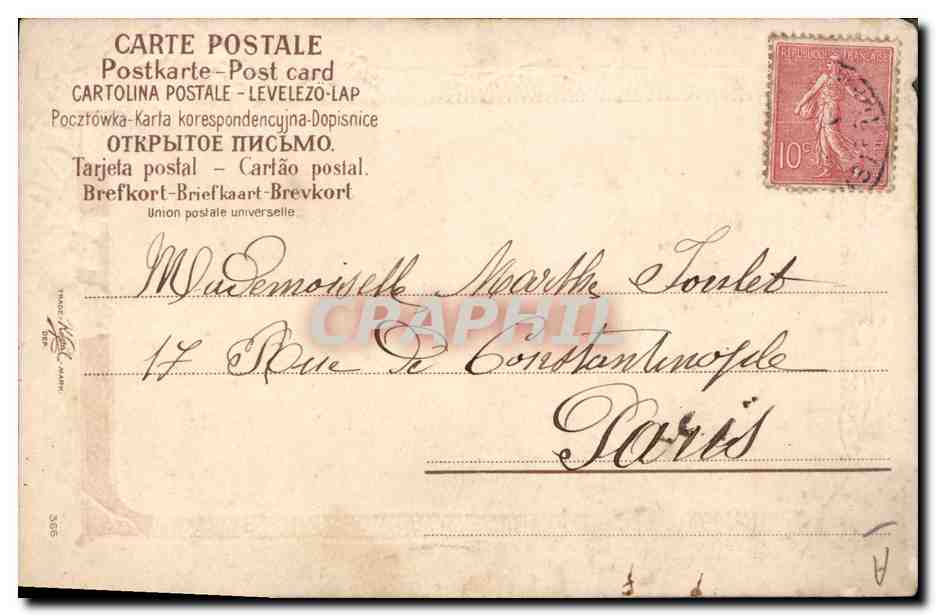 CARTE POSTALE
Postkarte - Post card
CARTOLINA POSTALE - LEVELEZÖ-LAP
Pocztówka-Karta korespondencyjna-Dopisnice
ОТКРЫТОЕ ПИСЬМО.
Tarjeta postal - Cartão postal.
Brefkort-Briefkaart-Brevkort
Union postale universelle.
REPUBLIQUE FRANÇAISE
10c
Mademoiselle Marthe Toulet
CPARHIL
17 Rue de Constantinople
Paris
TRADE MARK.
DEP.
366
A